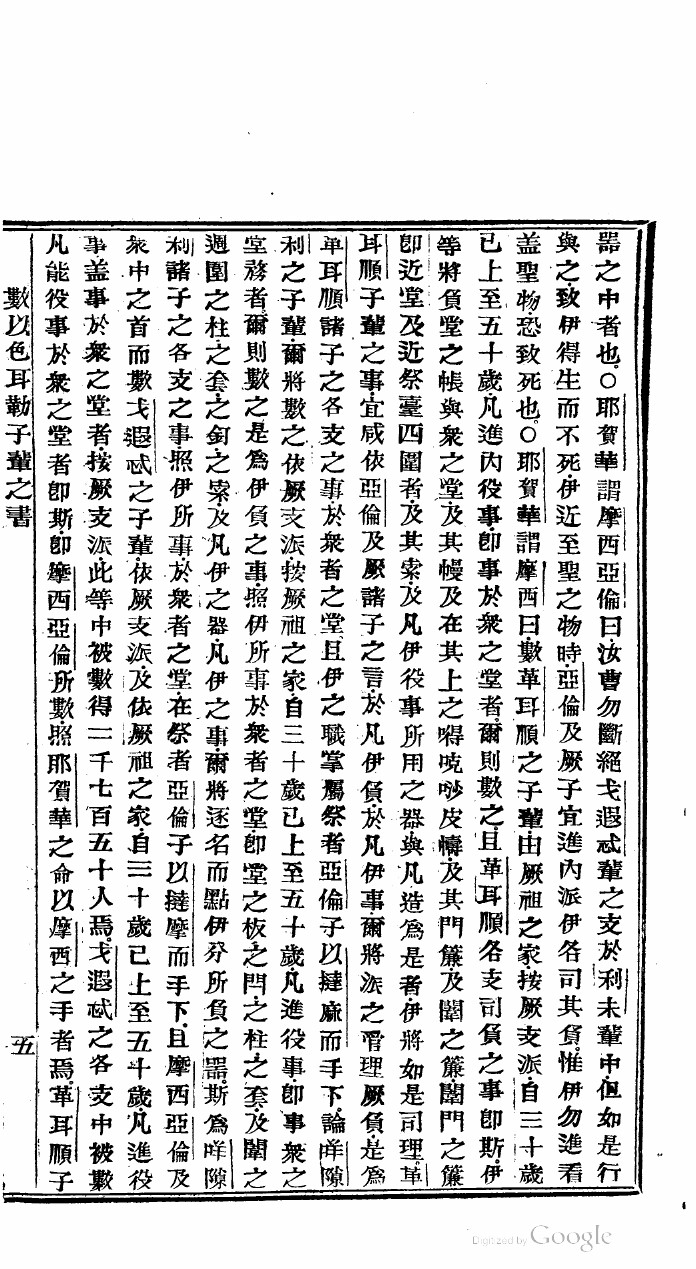 器之中者也○耶賀華謂摩西亞倫曰汝曹勿斷絕戈遐忒輩之支於利未輩中但如是行
與之致伊得生而不死伊近至聖之物時亞倫及厥子宜進內派伊各司其負惟伊勿進看
盖聖物恐致死也○耶賀華謂摩西曰數革耳順之子輩由厥祖之家按厥支派自三十歲
已上至五十歲凡進內役事卽事於衆之堂者爾則數之且革耳順各支司負之事卽斯伊
等將負堂之帳與衆之堂及其幔及在其上之嘚唬唦皮幬及其門簾及闈之簾闈門之簾
卽近堂及近祭臺四圍者及其索及凡伊役事所用之器與凡造爲是者伊將如是司理革
耳順子輩之事宜咸依亞倫及厥諸子之言於凡伊負於凡伊事爾將派之管理厥負是爲
革耳順諸子之各支之事於衆者之堂且伊之職掌屬祭者亞倫子以撻麻而手下論咩隙
利之子輩爾將數之依厥支派按厥祖之家自三十歲已上至五十歲凡進役事卽事衆之
堂務者爾則數之是爲伊負之事照伊所事於衆者之堂卽堂之板之閂之柱之套及闈之
週圍之柱之套之釘之索及凡伊之器凡伊之事爾將逐名而點伊分所負之器斯爲咩隙
利諸子之各支之事照伊所事於衆者之堂在祭者亞倫子以撻摩而手下且摩西亞倫及
衆中之首而數戈遐忒之子輩依厥支派及依厥祖之家自三十歲已上至五十歲凡進役
事盖事於衆之堂者按厥支派此等中被數得二千七百五十人焉戈遐忒之各支中被數
凡能役事於衆之堂者卽斯卽摩西亞倫所數照耶賀華之命以摩西之手者焉革耳順子
數以色耳勒子輩之書
五
Digitized by Google